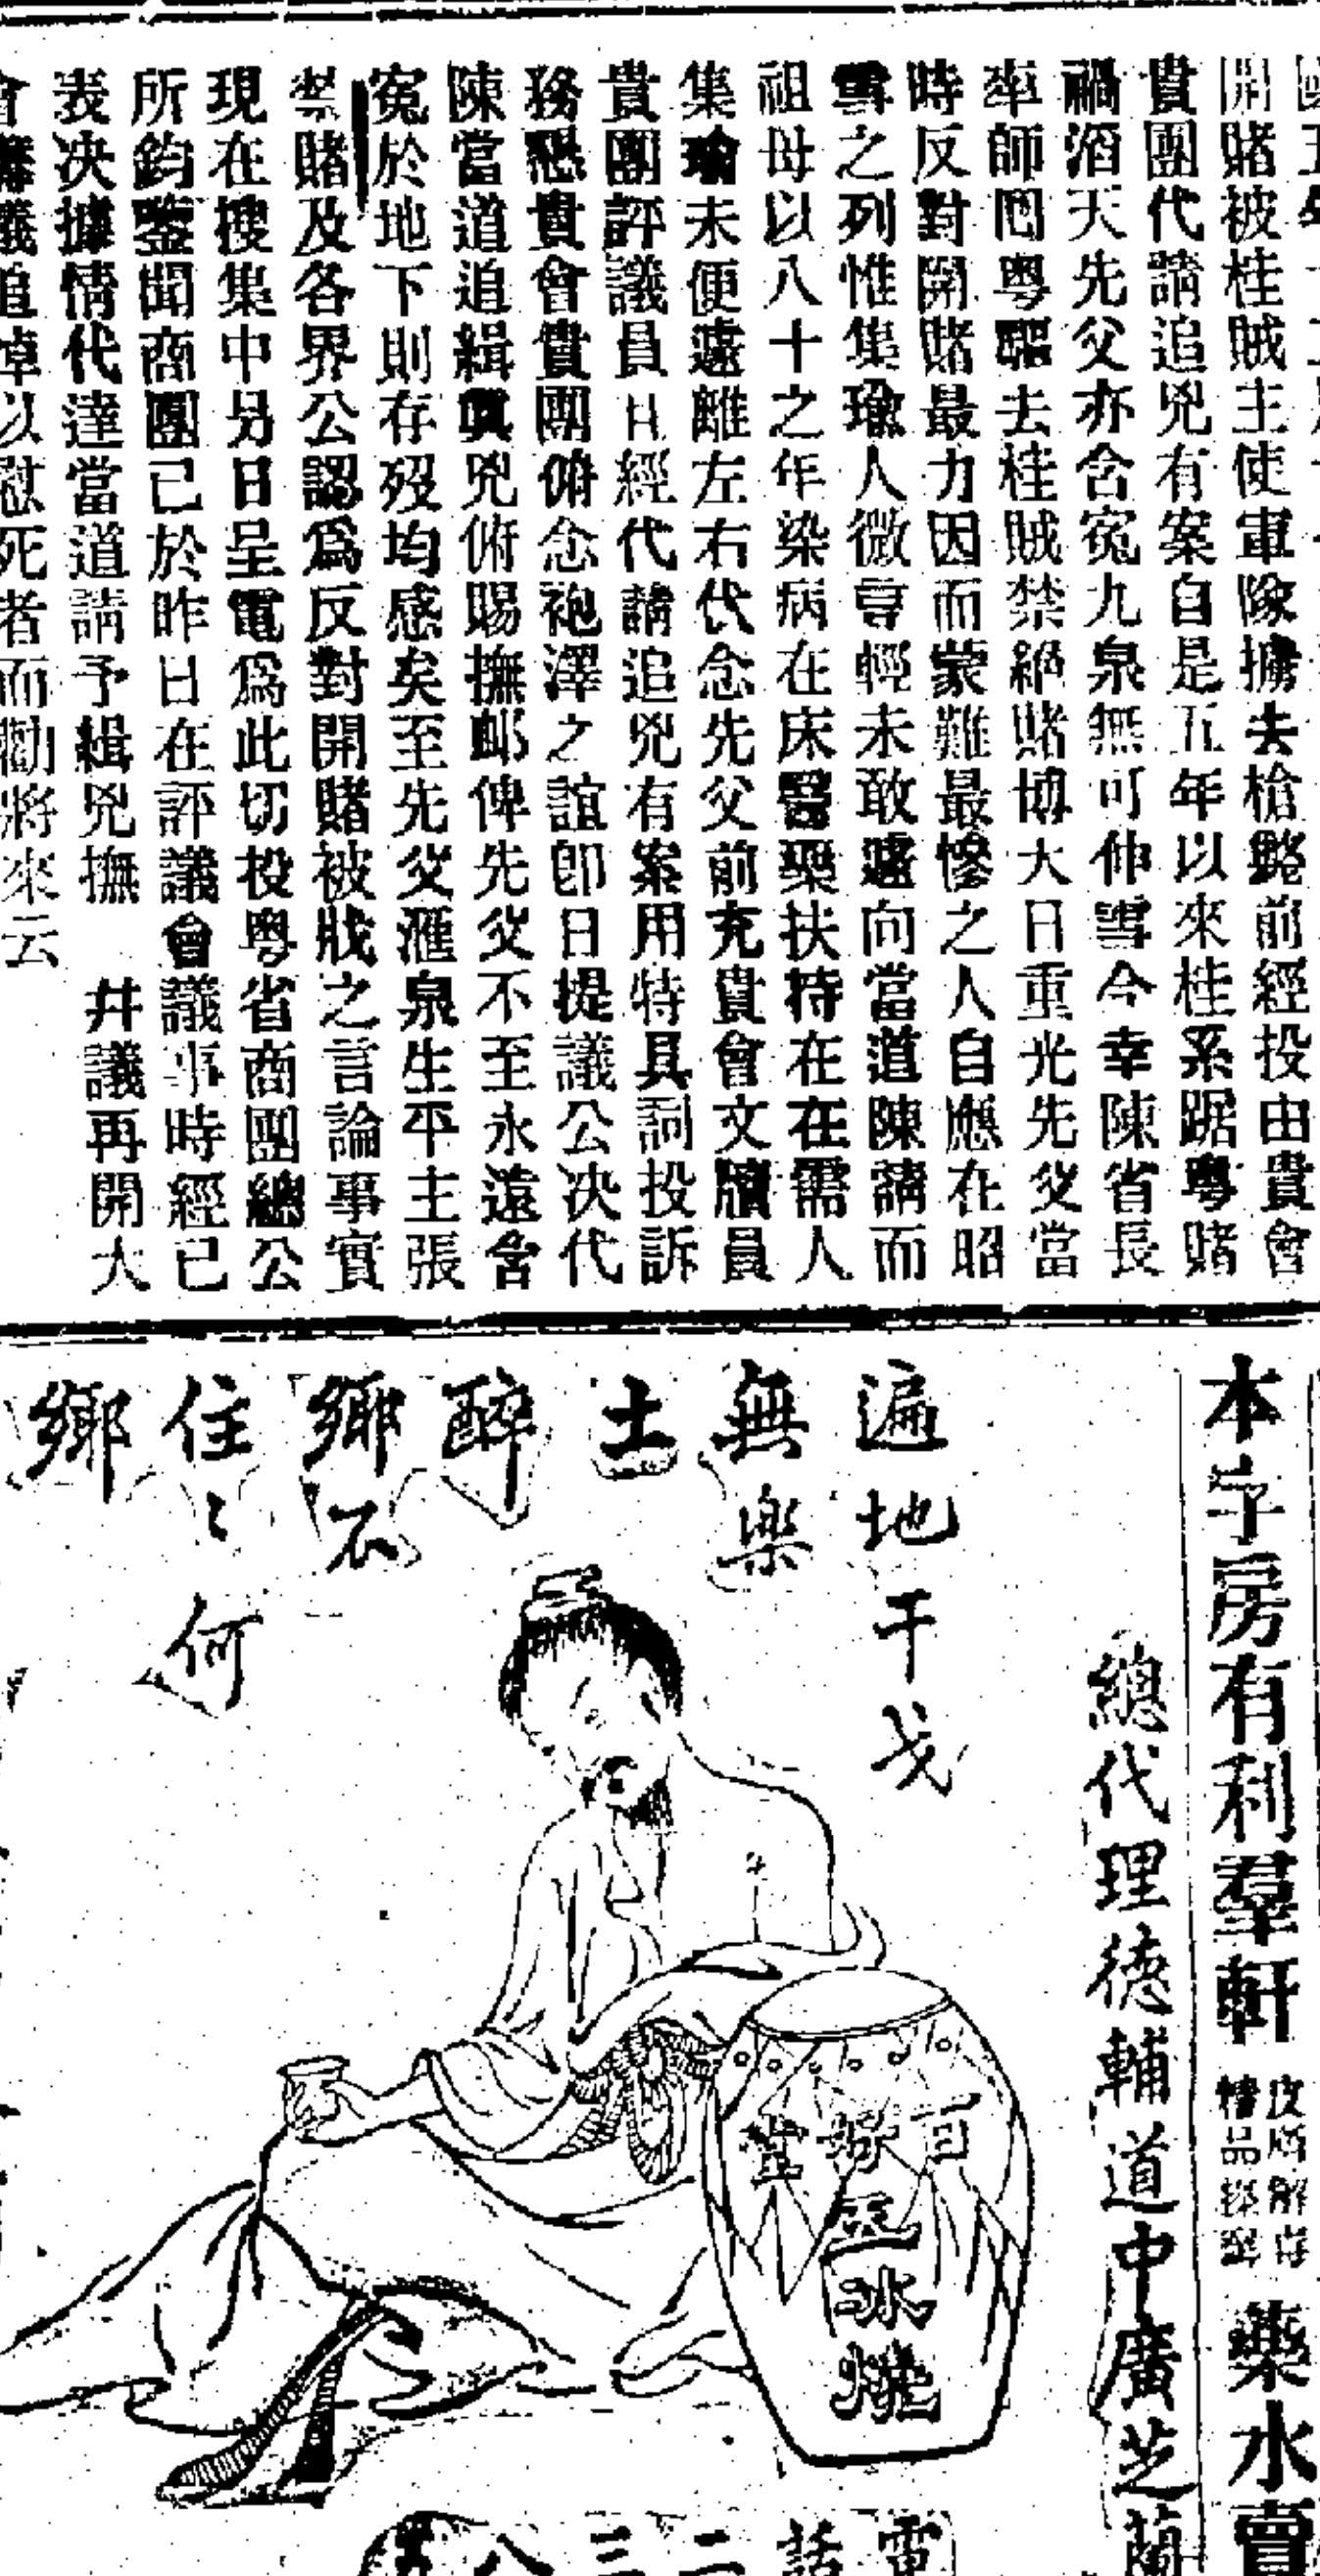 開賭被桂賊主使軍隊擄去槍斃前經投由貴會
貴團代請追兇有案自是五年以來桂系踞粵賭
禍滔天先父亦含冤九泉無可伸雪今幸陳省長
率師囘粵驅去桂賊禁絕賭博大日重光先父當
時反對開賭最力因而蒙難最慘之人自應在昭
雪之列惟集瑜人微言輕未敢遽向當道陳請而
祖母以八十之年染病在床醫藥扶持在在需人
集瑜未便遠離左右伏念先父前充貴會文牘員
貴團評議員日經代請追兇有案用特具詞投訴
務懇貴會貴團俯念袍澤之誼卽日提議公决代
陳當道追緝眞兇俯賜撫邮俾先父不至永遠含
寃於地下則存歿均感矣至先父滙泉生平主張
禁賭及各界公認爲反對開賭被戕之言論事實
現在搜集中另日呈電爲此切投粵省商團總公
所鈞鑒聞商團已於昨日在評議會議事時經已
表决據情代達當道請予緝兇撫 幷議再開大
會 議追悼以慰死者而勸將來云
本字房有利羣軒
藥水賣
總代理德輔道中廣芝蘭
遍地干戈
無樂
土
醉
鄉不
住〻何
鄉
百
堂
玉冰燒
電話二三八